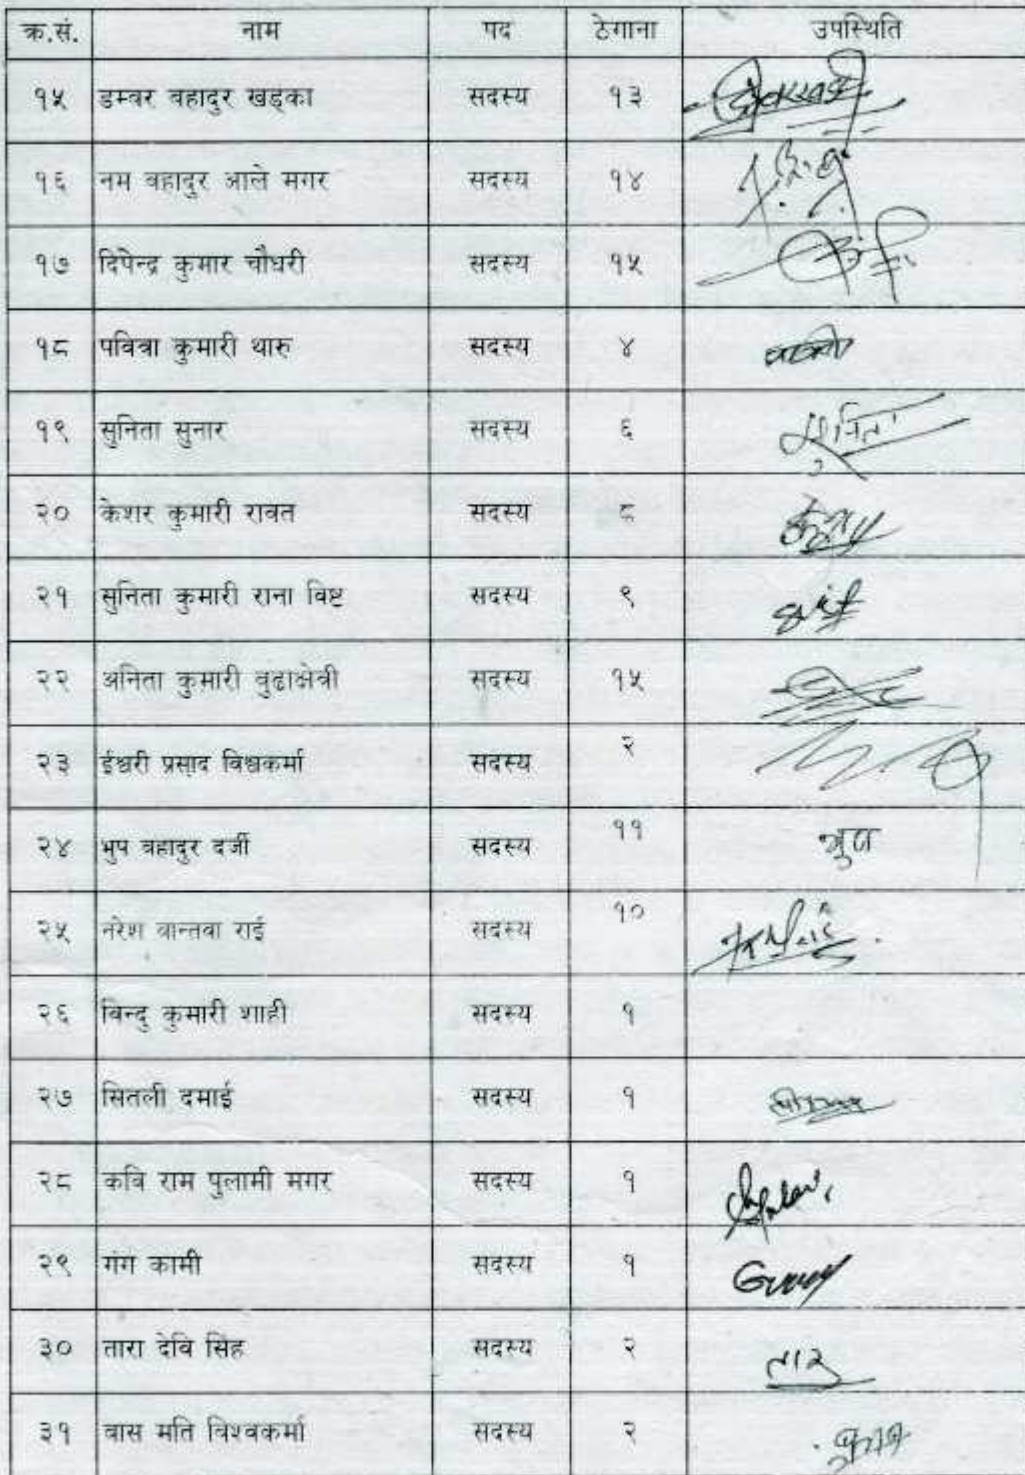 क्र.सं. नाम पद ठेगाना उपस्थिति
१५ डम्वर वहादुर खड्का सदस्य १३
१६ नम वहादुर आले मगर सदस्य १४
१७ दिपेन्द्र कुमार चौधरी सदस्य १५
१८ पवित्रा कुमारी थारु सदस्य ४
१९ सुनिता सुनार सदस्य ६ सुनिता
२० केशर कुमारी रावत सदस्य ८
२१ सुनिता कुमारी राना विष्ट सदस्य ९
२२ अनिता कुमारी वुढाक्षेत्री सदस्य १५
२३ ईश्वरी प्रसाद विश्वकर्मा सदस्य २
२४ भुप बहादुर दर्जी सदस्य ११ भुप
२५ नरेश वान्तवा राई सदस्य १०
२६ विन्दु कुमारी शाही सदस्य १
२७ सितली दमाई सदस्य १
२८ कवि राम पुलामी मगर सदस्य १
२९ गंग कामी सदस्य १
३० तारा देवि सिंह सदस्य २ तारा
३१ वास मति विश्वकर्मा सदस्य २